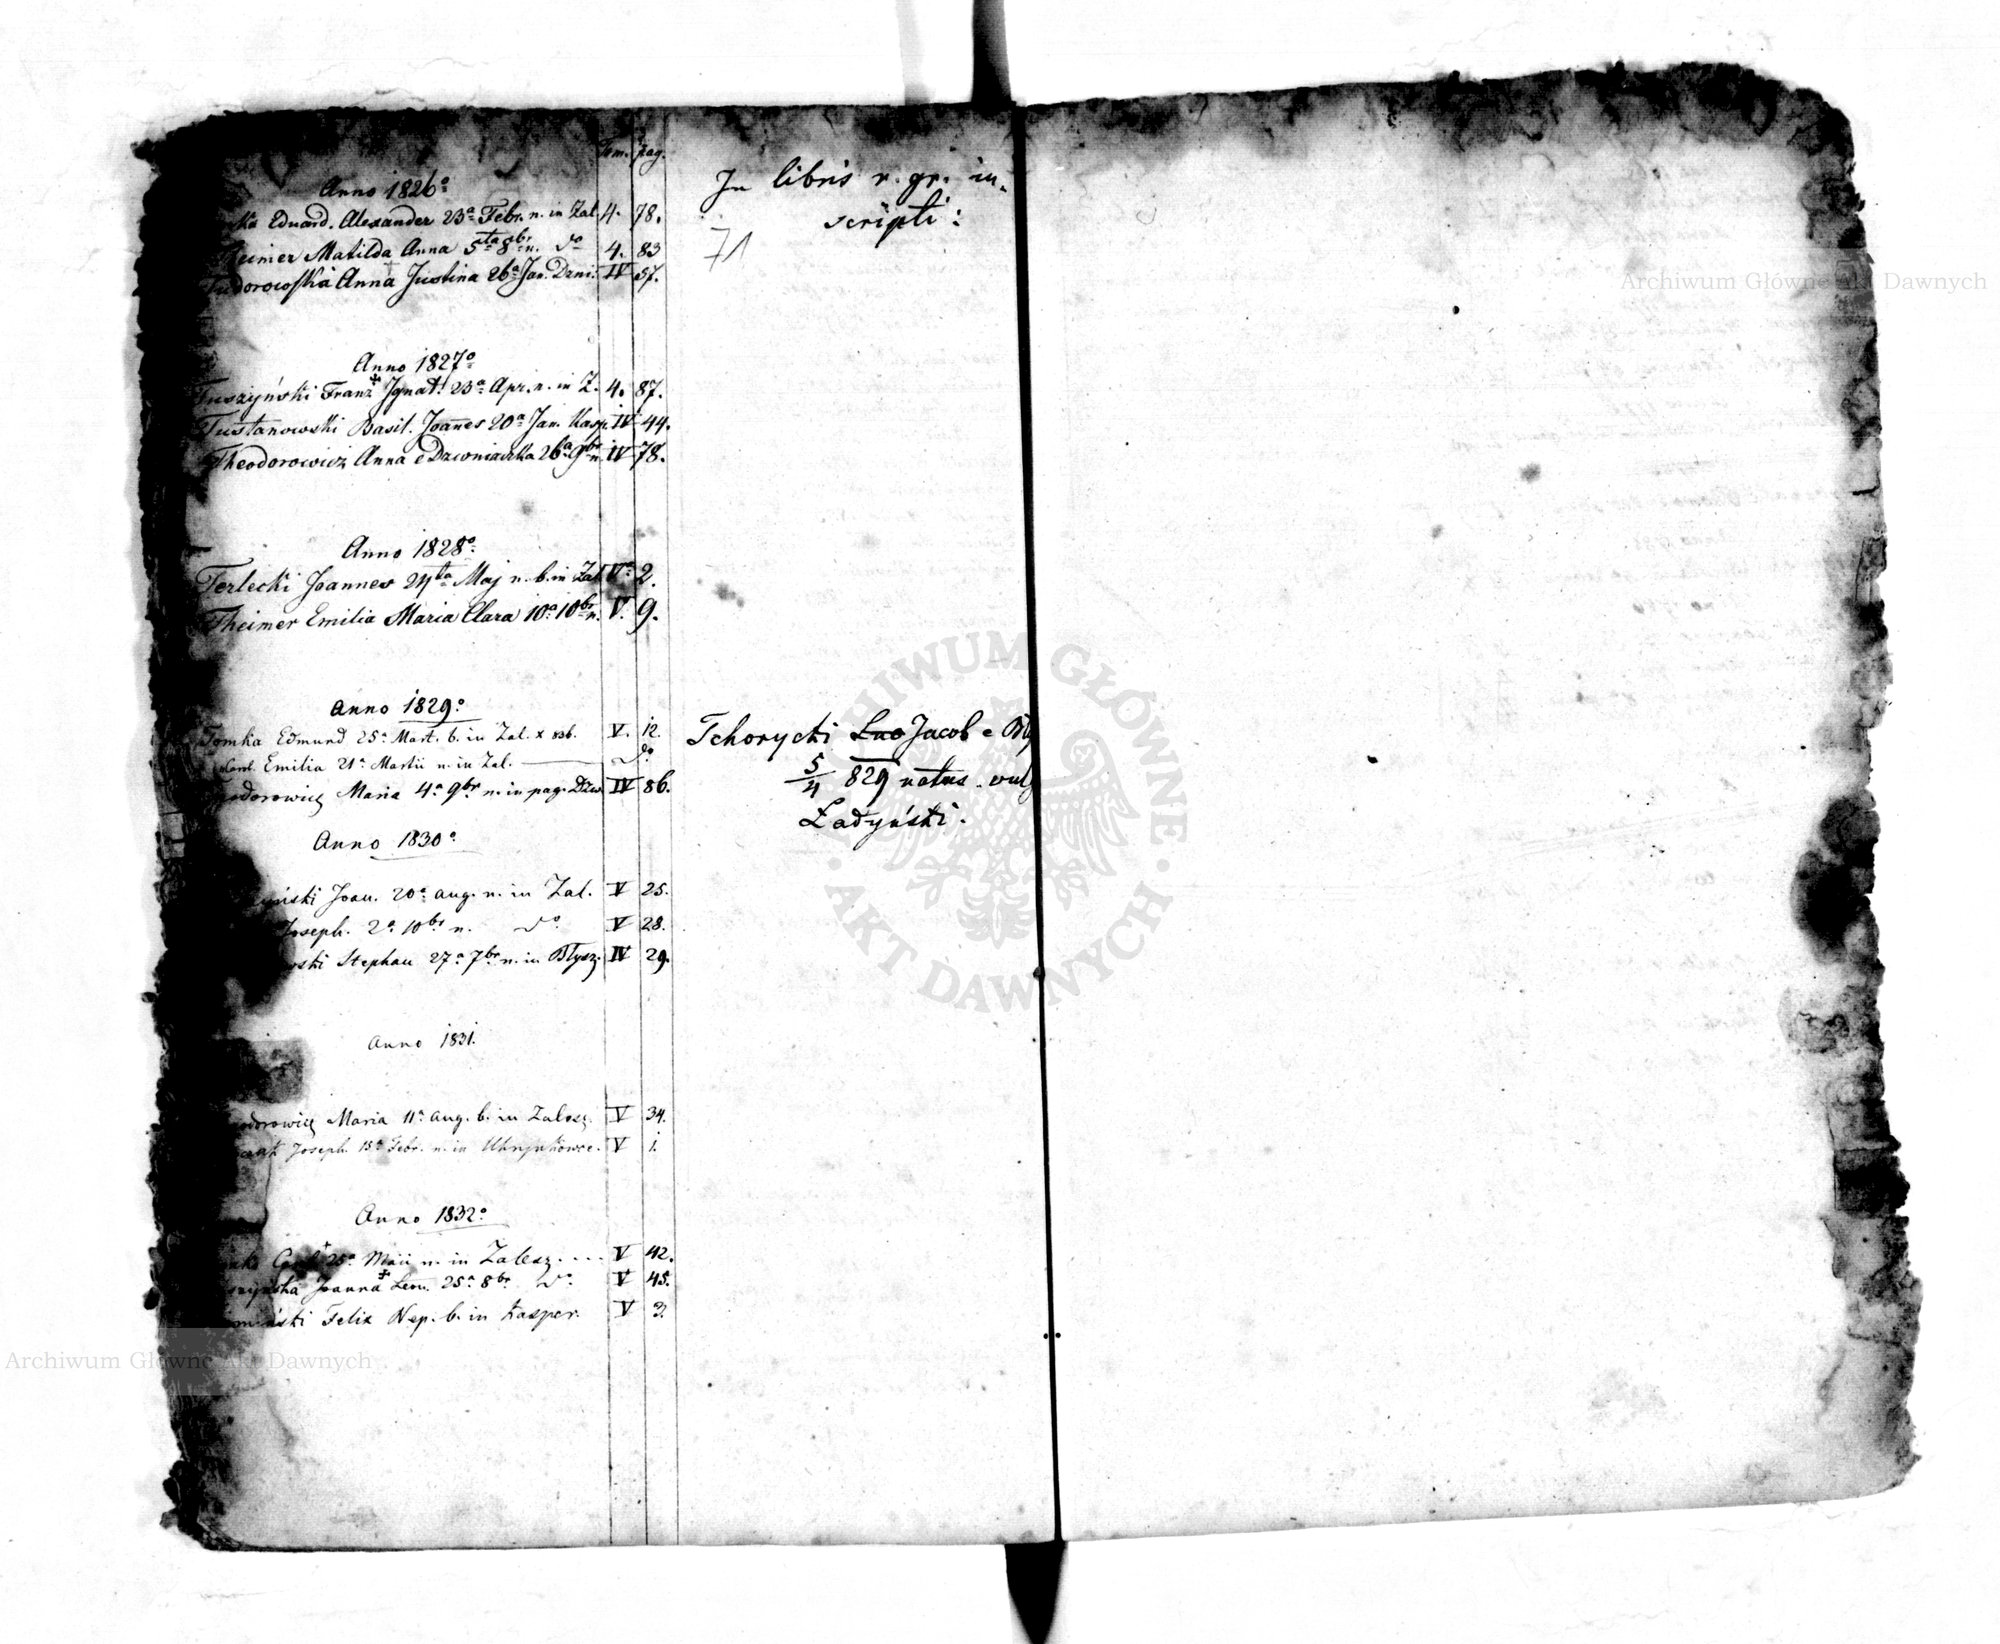 Tom. pag.
Anno 1826º
Eduard. Alexander 23ª Febr. n. in Zal. 4. 78.
Matilda Anna 5ta 8br. n. dº 4. 83
Anna Justina 26ª Jan. Dzni. IV 57.
Anno 1827º
Tuszyński Franz Ignat. 23ª Apr. n. in Z. 4. 87.
Tustanowski Basil. Joanes 20ª Jan. Kasp. IV 44.
Theodorowicz Anna e Dzwniaczka 26ta 9br n. IV 78.
Anno 1828º
Terlecki Joannes 24ta Maj n. b. in Zal. Vº 2.
Theimer Emilia Maria Clara 10ª 10br n. V. 9.
Anno 1829º
Tomka Edmund 25ª Mart. b. in Zal. x 836. V. 12.
Emilia 21ª Martii n. in Zal. dº
odorowicz Maria 4ª 9br n. in pag. Dzw. IV 86.
Anno 1830º
yński Joan. 20ª aug. n. in Zal. V 25.
Joseph. 2ª 10br n. dº V 28.
wski Stephan 27ª 7br n. in Błysz. IV 29.
Anno 1831.
odorowicz Maria 11ª aug. b. in Zalesz. V 34.
Joseph. 15ª Febr. n. in V 1.
Anno 1832º
25ª Maii n. in Zalesz. V 42.
szyńska Joanna Leon. 25ª 8br dº V 45.
miński Felix Nep. b. in Kasper. V 3.
In libris r. gr. in-
scripti:
71
Tchorycki Luc Jacob e Bły
5/4 829 natus. vul
Ładyński.
Archiwum Główne Akt Dawnych
ARCHIWUM GŁÓWNE · AKT DAWNYCH ·
Archiwum Główne Akt Dawnych